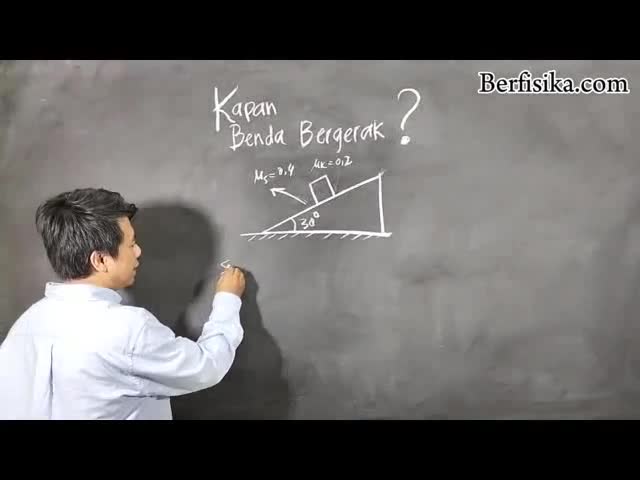 Berfisika.com
Kapan
Benda Bergerak ?
μs=0,4 μk=0,2
30°